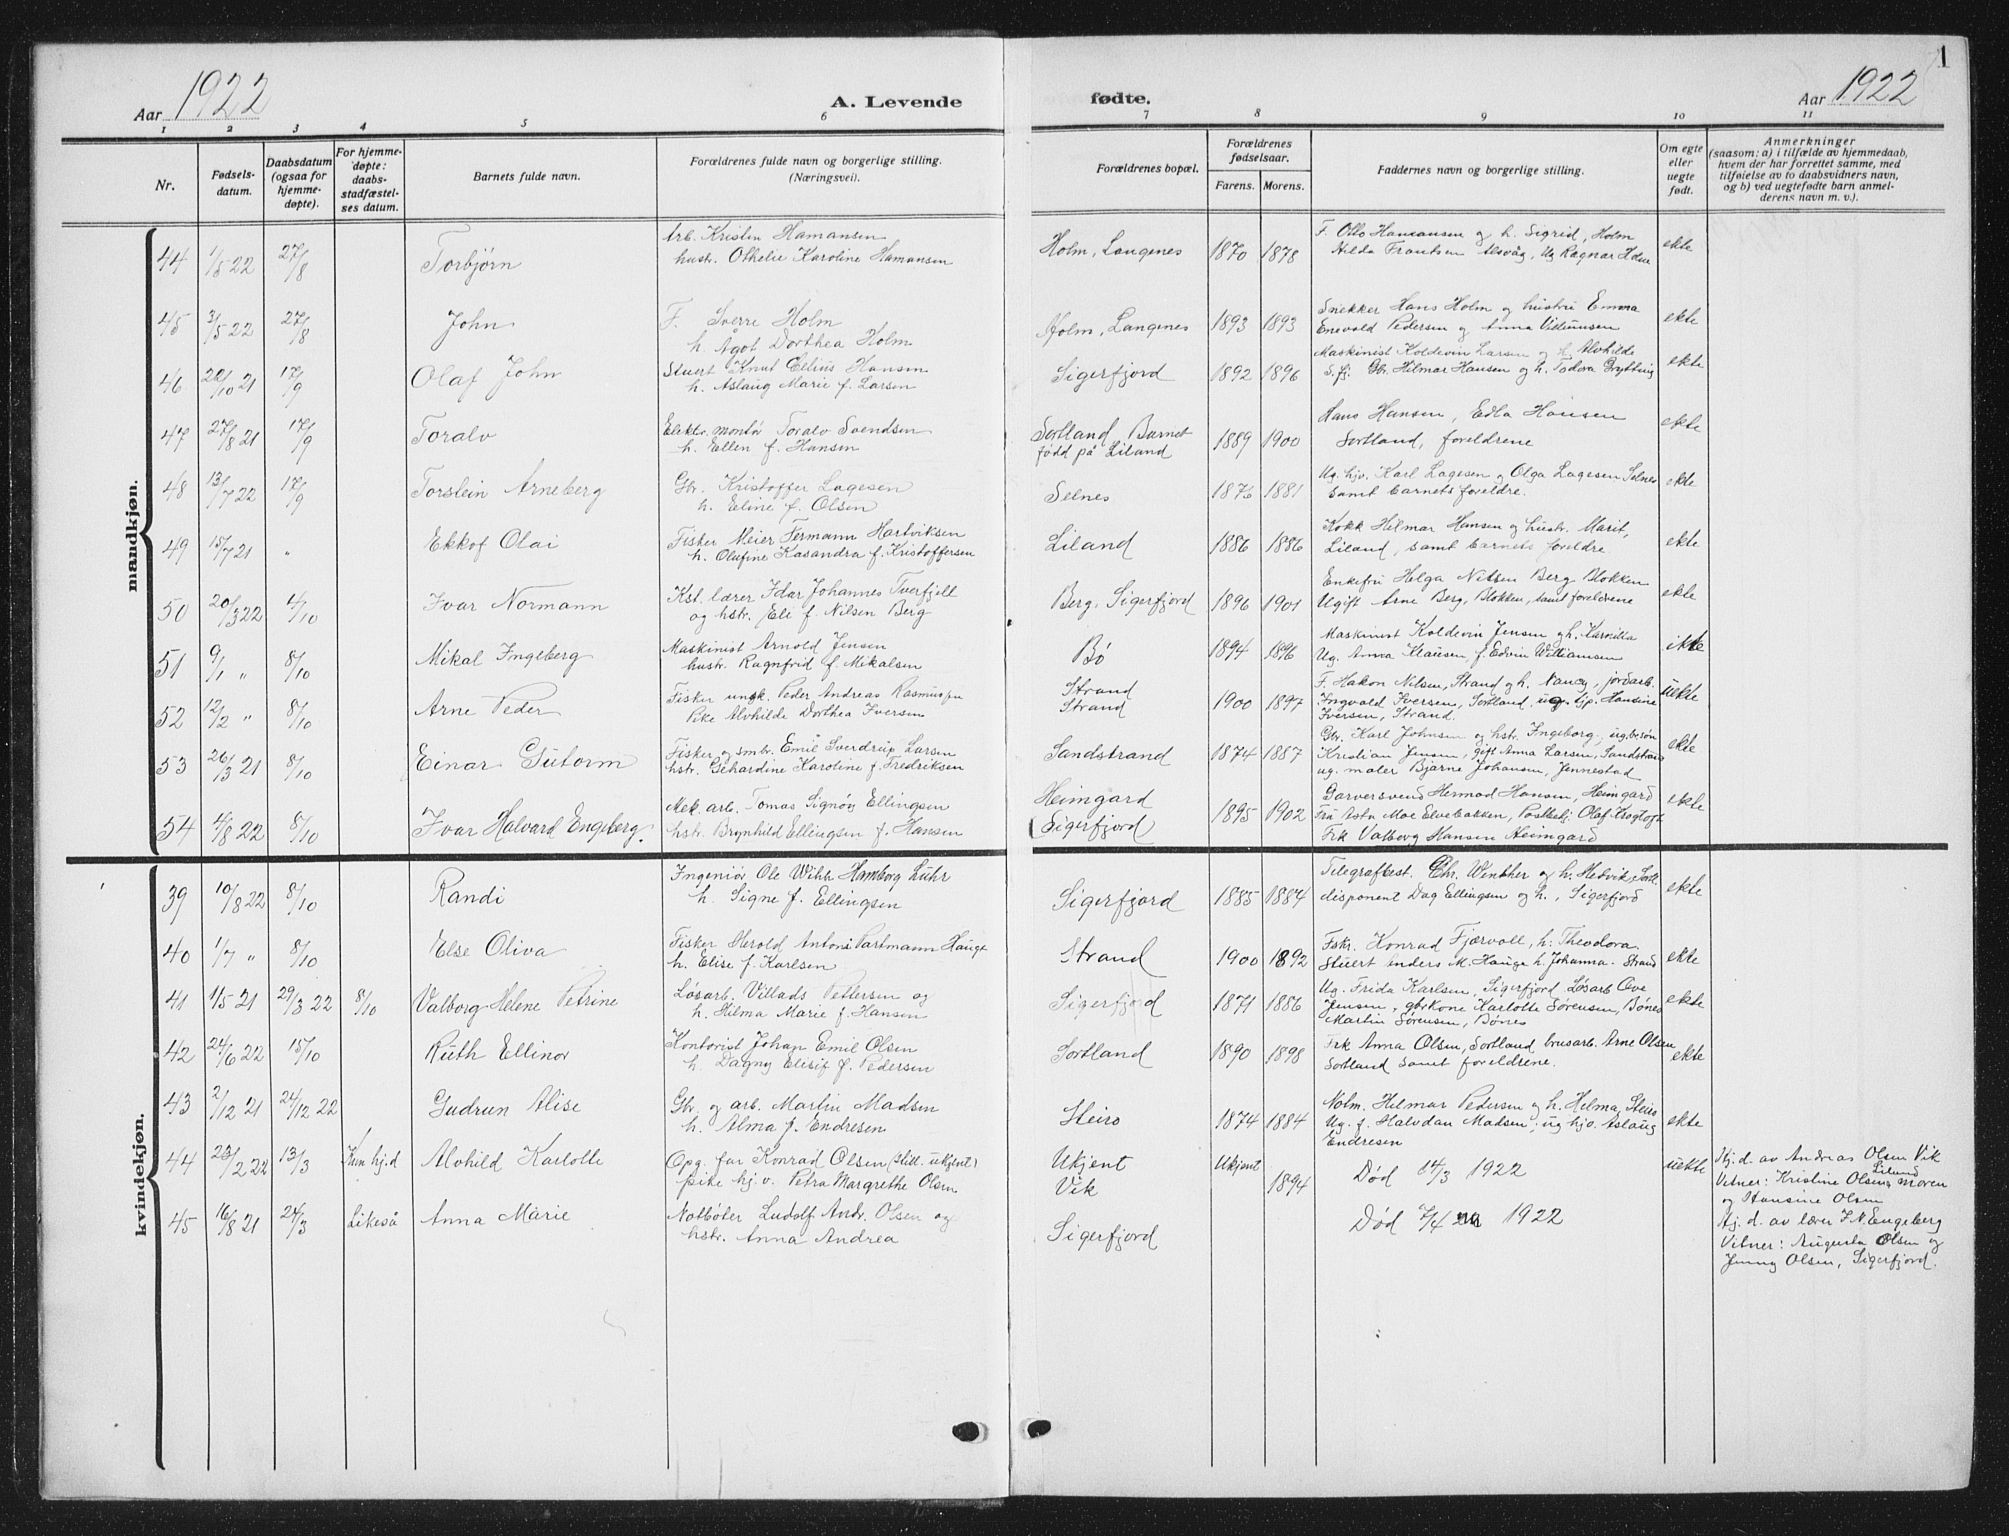 Aar 1922
A. Levende fødte.
Aar 1922
1
1 2 3 4 5 6 7 8 9 10 11
Nr.
Fødsels-
datum.
Daabsdatum
(ogsaa for
hjemme-
døpte).
For hjemme-
døpte:
daabs-
stadfæstel-
ses datum.
Barnets fulde navn.
Forældrenes fulde navn og borgerlige stilling.
(Næringsvei).
Forældrenes bopæl.
Forældrenes
fødselsaar.
Farens. Morens.
Faddernes navn og borgerlige stilling.
Om egte
eller
uegte
født.
Anmerkninger
(saasom: a) i tilfælde av hjemmedaab,
hvem der har forrettet samme, med
tilføielse av to daabsvidners navn,
og b) ved uegtefødte barn anmel-
derens navn m. v.).
mandkjøn.
44 1/8 22 27/8 Torbjørn
Arb. Kristen Hamansen
hustr. Othelie Karoline Hamansen
Holm, Langenes 1870 1878
F. Otto Hamansen og h. Sigrid, Holm
Hilda Frantsen Alsvåg, Ug Ragnar
ekte
45 3/5 22 27/8 John
F. Sverre Holm
h. Agot Dorthea Holm
Holm, Langenes 1893 1893
Snekker Hans Holm og hustru Emma
Enevold Pedersen og Anna
ekte
46 20/10 21 17/9 Olaf John
Stuert Knut Elius Hansen
h. Aslaug Marie f. Larsen
Sigerfjord 1892 1896
Maskinist Koldevin Larsen og h. Alvhilde
S.fj. Gbr. Hilmar Hansen og h. Todora Grytting
ekte
47 27/8 21 17/9 Toralv
Elektr. montør Toralv Svendsen
h. Ellen f. Hansen
Sortland, Barnet
født på Liland 1889 1900
Hans Hansen, Edla Hansen
Sortland, foreldrene
ekte
48 13/7 22 17/9 Torstein Arneberg
Gbr. Kristoffer Lagesen
h. Eline f. Olsen
Selnes 1876 1881
Ug. hjv. Karl Lagesen og Olga Lagesen Selnes
samt barnets foreldre.
ekte
49 15/7 21 " Ekkof Olai
Fisker Meier Fermann Hartviksen
h. Olufine Kasandra f. Kristoffersen
Liland 1886 1886
Kokk Hilmar Hansen og hustr. Marit,
Liland, samt barnets foreldre.
ekte
50 20/3 22 1/10 Ivar Normann
Kst. lærer Idar Johannes Tverfjell
og hstr. Eli f. Nilsen Berg
Berg, Sigerfjord 1896 1901
Enkefru Helga Nilsen Berg Blokken
Ugift Arne Berg, Blokken, samt foreldrene
ekte
51 9/1 " 8/10 Mikal Ingeberg
Maskinist Arnold Jensen
hustr. Ragnfrid f. Mikalsen
Bø 1894 1896
Maskinist Koldevin Jensen og h.
Ug. Anna Klausen, f. Edvin Williamsen
ekte
52 12/2 " 8/10 Arne Peder
Fisker ungk. Peder Andreas Rasmussen
Pike Alvhilde Dorthea Iversen
Strand
Strand 1900 1897
F. Hakon Nilsen, Strand og h. Nancy, jordarb.
Ingvald Iversen, Sortland, ug. tjp. Hansine
Iversen, Strand.
uekte
53 26/3 21 8/10 Einar Gutorm
Fisker og smbr. Emil Sverdrup Larsen
hstr. Gehardine Karoline f. Fredriksen
Sandstrand 1874 1887
Gbr. Karl Johnsen og hstr. Ingeborg, ug. besøn
Kristian Jensen, gift Anna Larsen, Sandstrand
ug. maler Bjarne Johansen, Jennestad
ekte
54 4/8 22 8/10 Ivar Halvard Engeberg.
Mek. arb. Tomas Signøy Ellingsen
hstr. Brynhild Ellingsen f. Hansen
Heimgard
(Sigerfjord) 1895 1902
Garversvend Hermod Hansen, Heimgard
Fru Asta Moe Elvebakken, Postbetj. Olaf Krogtoft
Frk Valborg Hansen Heimgard
ekte
kvindekjøn.
39 10/8 22 8/10 Randi
Ingeniør Ole Wilh. Hamborg Luhr
h. Signe f. Ellingsen
Sigerfjord 1885 1884
Telegrafbest. Chr. Winther og h. Hedvik, Sortl.
disponent Dag Ellingsen og h., Sigerfjord
ekte
40 1/7 " 8/10 Else Oliva
Fisker Herold Antoni Partmann Hauge
h. Elise f. Karlsen
Strand 1900 1892
Fskr. Konrad Fjærvoll, h. Theodora.
Stuert Anders M. Hauge h. Johanna. Strand
ekte
41 1/5 21 29/3 22 8/10 Valborg Helene Petrine
Løsarb. Villads Pettersen og
h. Hilma Marie f. Hansen
Sigerfjord 1871 1886
Ug. Frida Karlsen, Sigerfjord Løsarb Ove
Jensen, gbrkone Karlotte Sørensen, Bønes
Martin Sørensen, Bønes
ekte
42 24/6 22 15/10 Ruth Ellinor
Kontorist Johan Emil Olsen
h. Dagny Elisif f. Pedersen
Sortland 1890 1898
Frk Anna Olsen, Sortland brusarb. Arne Olsen
Sortland samt foreldrene.
ekte
43 2/12 21 24/12 22 Gudrun Alise
Gbr. og arb. Martin Madsen
h. Alma f. Endresen
Steiro 1874 1884
Nolm. Hilmar Pedersen og h. Helma, Steiro
Ug. f. Halvdan Madsen, ug hjv. Aslaug
Endresen
ekte
44 23/2 22 13/3 Kun hj.d Alvhild Karlotte
Opg. far Konrad Olsen (still. ukjent)
pike hj. v. Petra Margrethe Olsen
Ukjent
Vik Ukjent 1894
Død 14/3 1922
uekte
Hj. d. av Andreas Olsen Vik
Vitner: Kristine Olsen, Liland moren
og Hansine Olsen
45 16/8 21 24/3 Likeså Anna Marie
Notbøter Ludolf Andr. Olsen og
hstr. Anna Andrea
Sigerfjord
Død 7/4 1922
Hj. d. av lærer J. N. Engeberg
Vitner: Augusta Olsen og
Jenny Olsen, Sigerfjord.